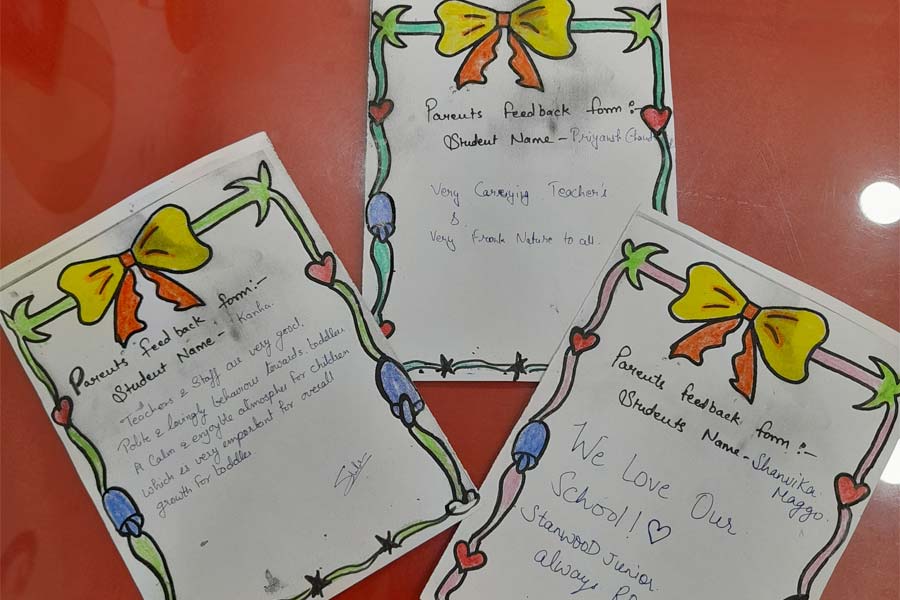 Parents feedback form :-
Student Name - Kanha.
Teachers & Staff are very good.
Polite & lovingly behaviour towards toddlers
A Calm & enjoyble atmospher for children
which is very emportent for overall
growth for toddler
Parents feedback form :-
Student Name - Priyansh
Very Carrying Teacher's
&
Very Frank Nature to all.
Parents feedback form :-
Students Name - Shanvika
Maggo.
We Love Our
School! ♡
Stanwood Junior
always